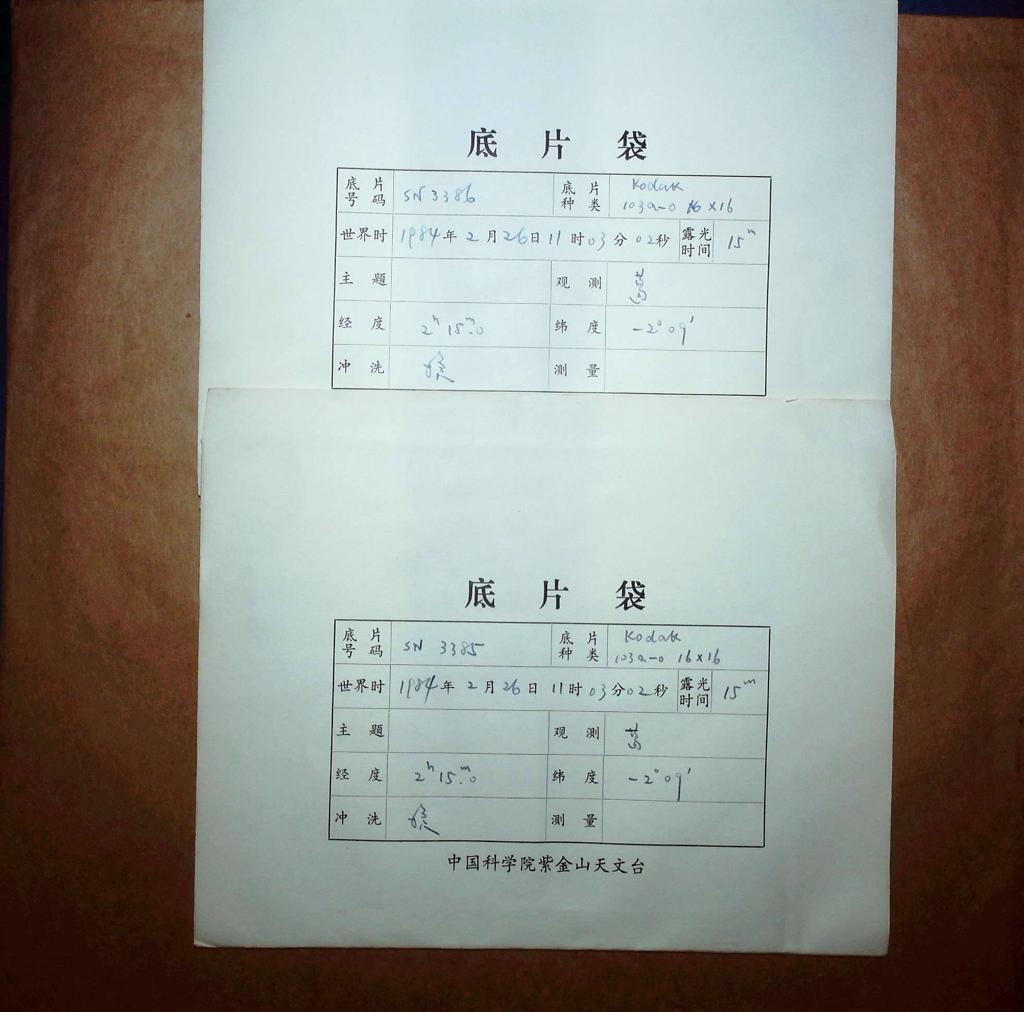 底 片 袋
底片号码 SN 3386 底片种类 Kodak 103a-0 16×16
世界时 1984年2月26日11时03分02秒 露光时间 15ᵐ
主题 观测
经度 2ʰ15ᵐ.0 纬度 -2°09′
冲洗 测量
底 片 袋
底片号码 SN 3385 底片种类 Kodak 103a-0 16×16
世界时 1984年2月26日11时03分02秒 露光时间 15ᵐ
主题 观测
经度 2ʰ15ᵐ.0 纬度 -2°09′
冲洗 测量
中国科学院紫金山天文台